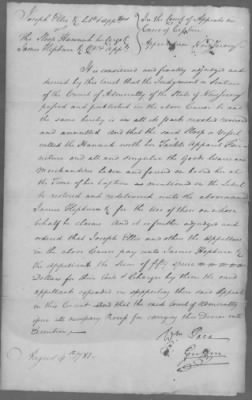 Joseph Ellis & al. Appellants
vs
The Sloop Hannah her Cargo &
James Hepburn & Appees
In the Court of Appeals in
Cases of Capture
Appeal from New Jersey
It is considered and finally adjudged and
decreed by this Court that the Judgment or Sentence
of the Court of Admiralty of the State of New Jersey
passed and published in the above Cause be and
the same hereby is in all its parts revoked reversed
and annulled And that the said Sloop or Vessel
called the Hannah with her Tackle Apparel Fur-
niture and all and singular the Goods Wares and
Merchandizes laden and found on board her at
the Time of her Capture as mentioned in the
be restored and redelivered unto the above named
James Hepburn & for the Use of those on whose
behalf he claims And it is further adjudged and
ordered that Joseph Ellis and others the Appellants
in the above Cause pay unto James Hepburn &
the appellees the Sum of fifty
Dollars for their Costs & Charges by them the said
appellees expended in supporting their said Appeal
in this Court And that the said Court of Admiralty
issue its necessary Process for carrying this Decree into
Execution
Wm Paca
Griffin
August 9th 1781